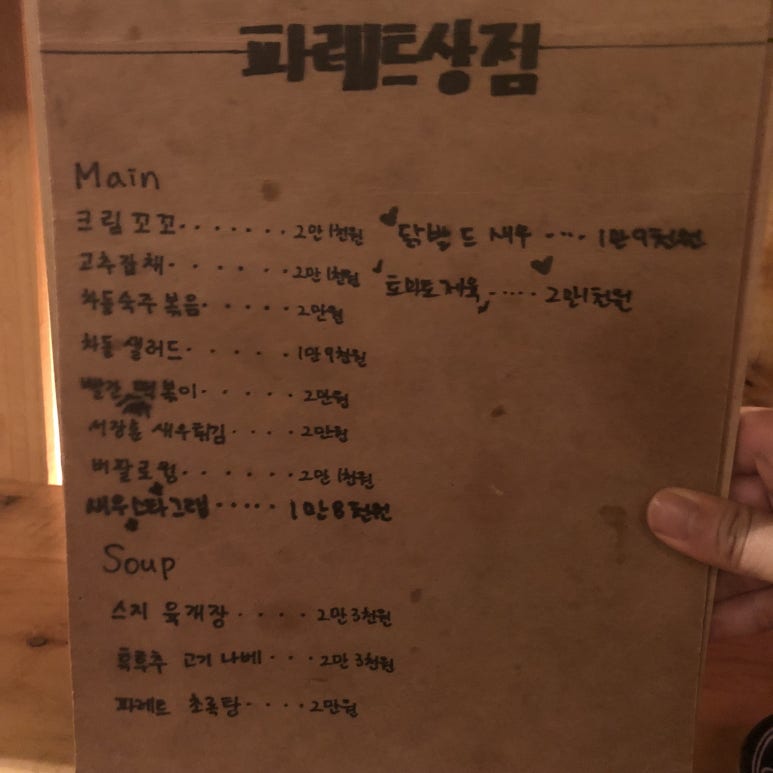 파레트상점
Main
크림꼬꼬.......2만1천원
고추잡채.....2만1천원
차돌숙주볶음.....2만원
차돌샐러드.....1만9천원
빨간 떡볶이.....2만원
서장훈 새우튀김....2만원
버팔로윙......2만1천원
새우스타그램.....1만8천원
닭발 드 새우....1만9천원
토마토제육.....2만1천원
Soup
스지 육개장....2만3천원
흑후추 고기 나베...2만3천원
파레트 초록탕....2만원